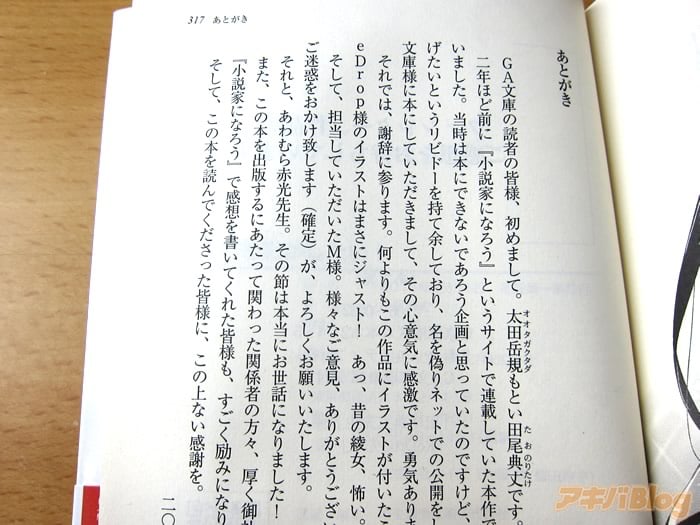 317 あとがき
あとがき
GA文庫の読者の皆様、初めまして。太田岳規もとい田尾典丈です。
オオタガクタダ
たおのりたけ
二年ほど前に『小説家になろう』というサイトで連載していた本作で
いました。当時は本にできないであろう企画と思っていたのですけど、
げたいというリビドーを持て余しており、名を偽りネットでの公開を
文庫様に本にしていただきまして、その心意気に感激です。勇気ありま
それでは、謝辞に参ります。何よりもこの作品にイラストが付いたこ
eDrop様のイラストはまさにジャスト! あっ、昔の綾女、怖い。
そして、担当していただいたM様。様々なご意見、ありがとうござい
ご迷惑をおかけ致します(確定)が、よろしくお願いいたします。
それと、あわむら赤光先生。その節は本当にお世話になりました!
また、この本を出版するにあたって関わった関係者の方々、厚く御
『小説家になろう』で感想を書いてくれた皆様も、すごく励みになり
そして、この本を読んでくださった皆様に、この上ない感謝を。
二〇
アキバBlog